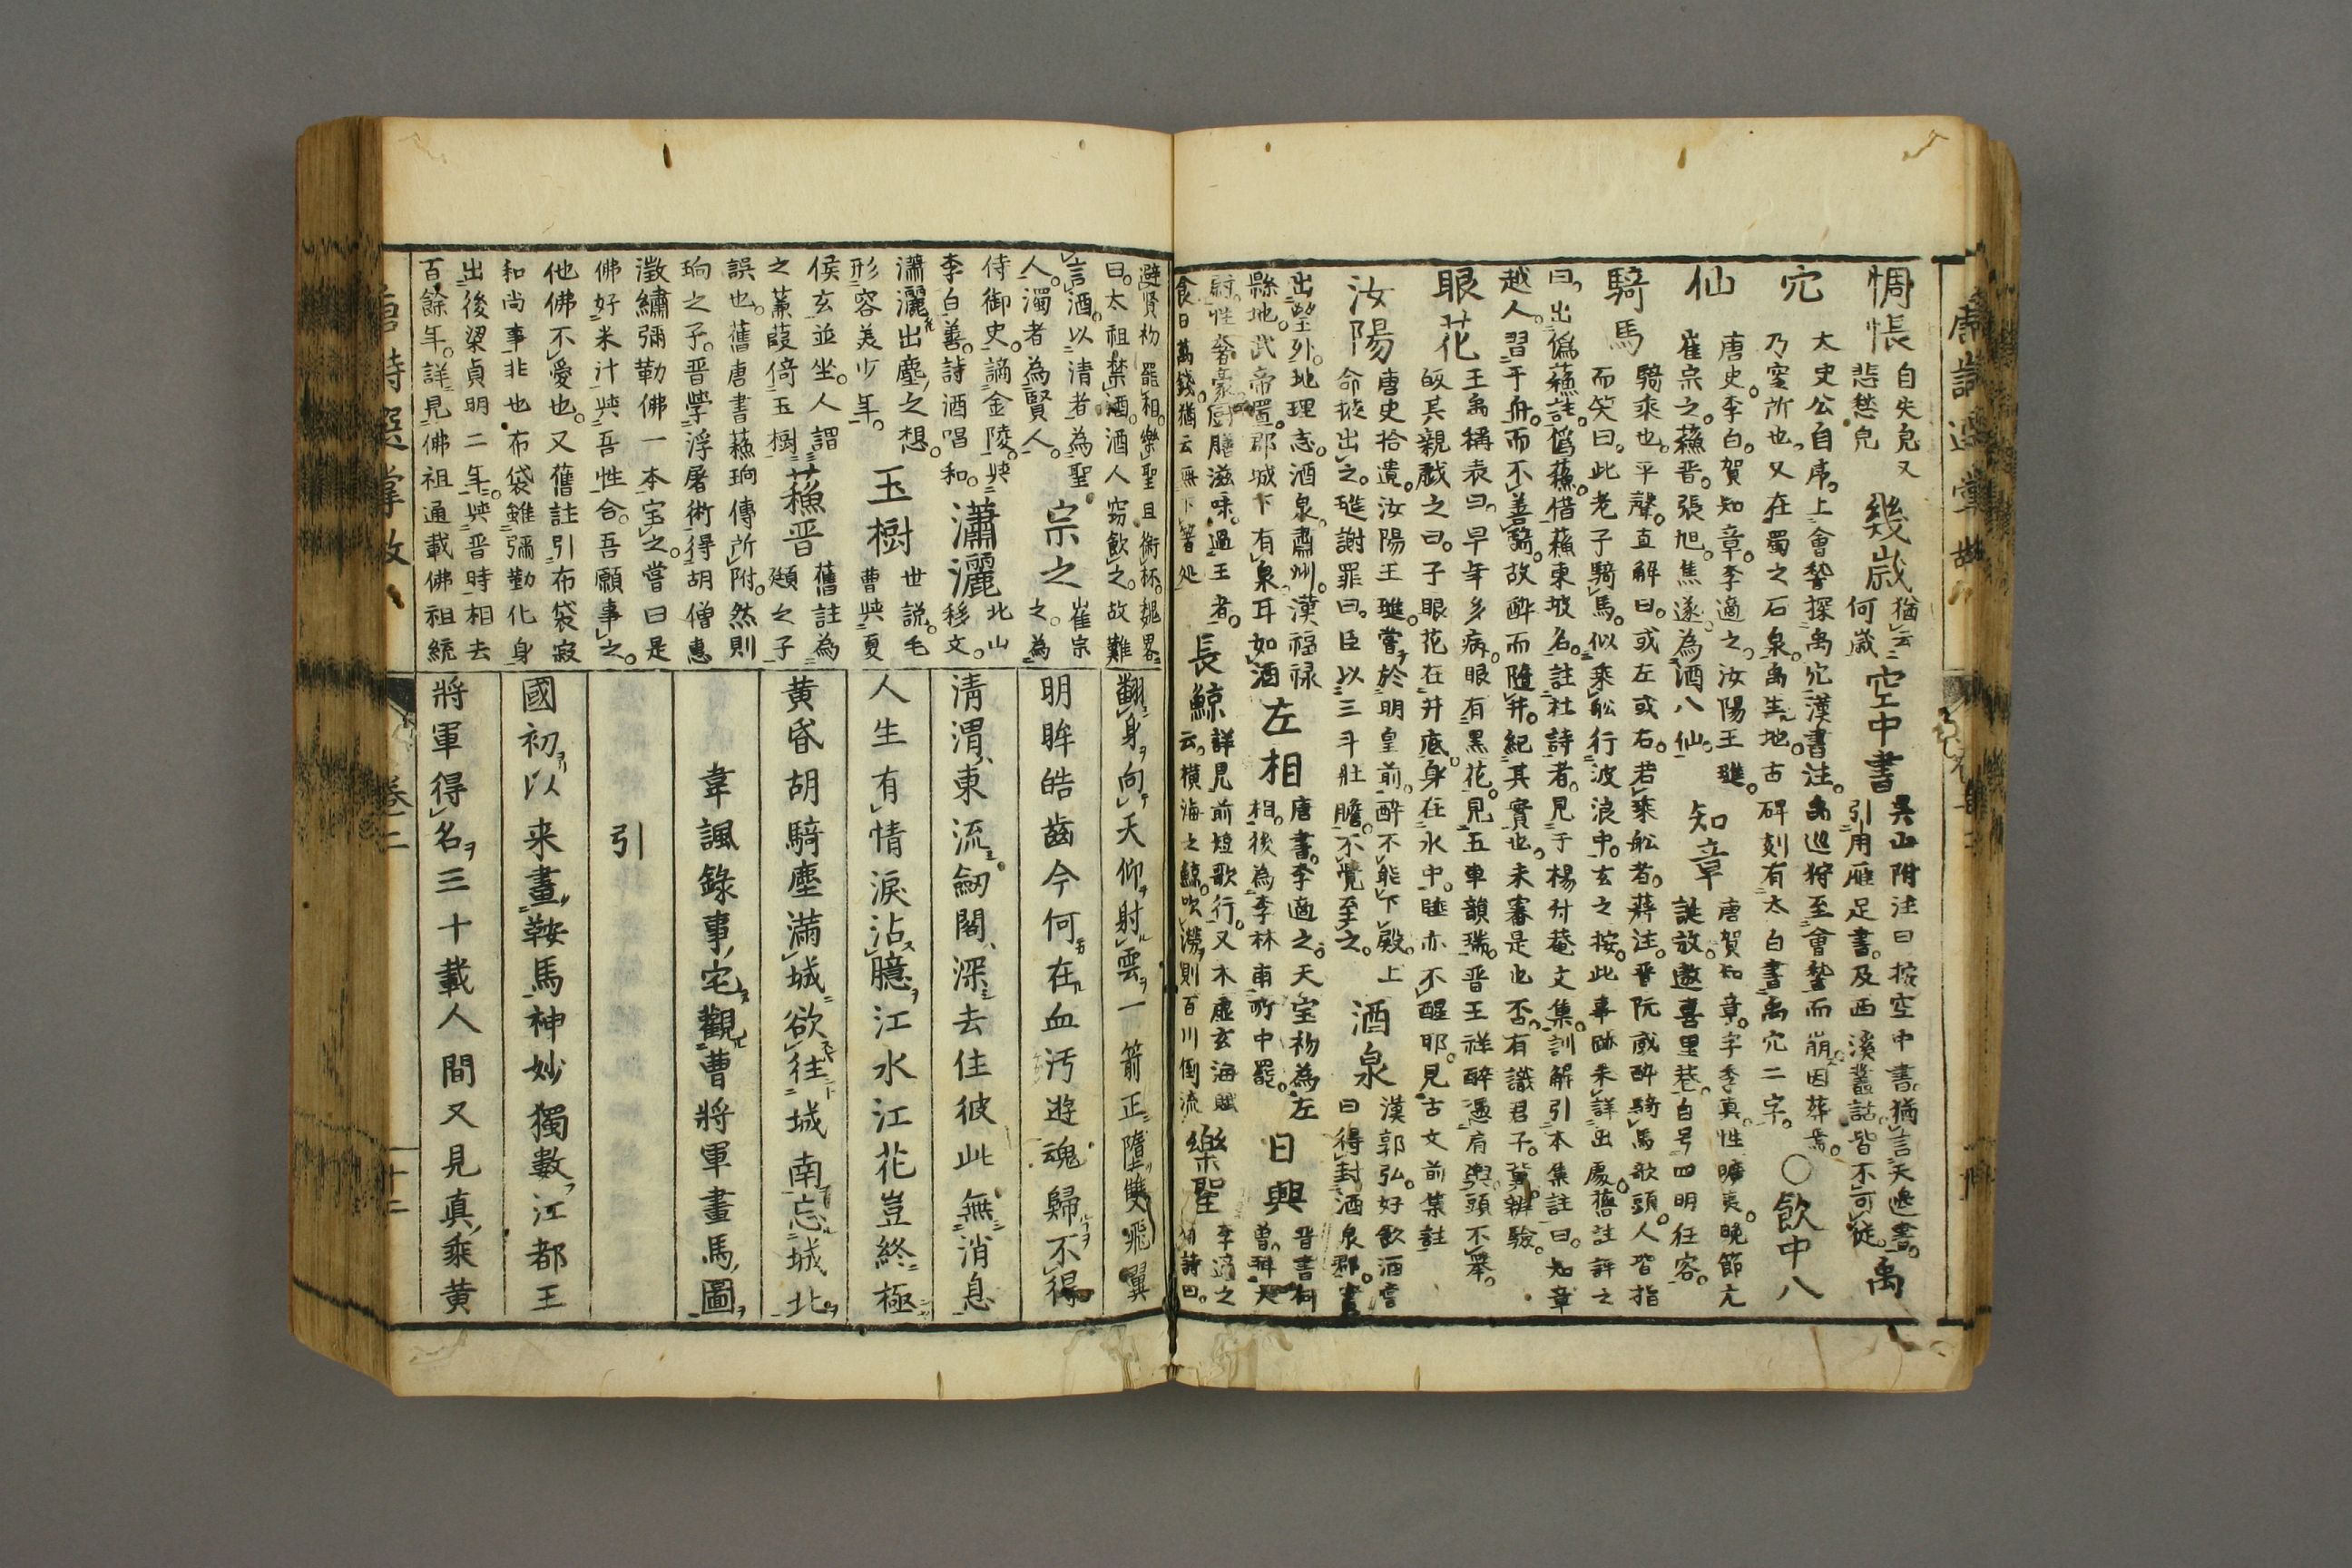 惆悵
自失皃又
悲愁皃
幾歲
猶云
何歲
空中書
吳山附注曰按空中書猶言天邊書。
引用雁足書。及西溪叢話皆不可從。
禹
穴
太史公自序。上會稽探禹穴漢書注。禹巡狩至會稽而崩。因葬焉。
乃窆所也。又在蜀之石泉。禹生地。古碑刻有太白書禹穴二字。
○飲中八
仙
唐史。李白。賀知章。李適之。汝陽王璡。
崔宗之。蘇晋。張旭。焦遂。為酒八仙。
知章
唐賀知章。字季真。性曠夷。晚節尤
誕放。遨喜里巷。自号四明狂客。
騎馬
騎乘也。平聲。直解曰。或左或右。若乘舩者。蔣注。晋阮咸醉騎馬歌頭。人皆指
而笑曰。此老子騎馬。似乘舩行波浪中。玄之按。此事跡未詳出處。舊註評之
曰。出偽蘓註。偽蘓。借蘓東坡名。註杜詩者。見于楊升菴文集。訓解引本集註曰。知章
越人。習于舟。而不善騎。故醉而墮井。紀其實也。未審是也否。有識君子。冀辨驗。
眼花
王禹稱表曰。早年多病。眼有黑花。見五車韻瑞。晋王祥醉憑肩輿。頭不舉。
故其親戯之曰。子眼花在井底。身在水中。睡亦不醒耶。見古文前集註
汝陽
唐史拾遺。汝陽王璡。嘗於明皇前。醉不能下殿。上
命掖出之。璡謝罪曰。臣以三斗壯膽。不覺至之。
酒泉
漢郭弘。好飲酒嘗
曰得封酒泉郡。實
出望外。地理志。酒泉。肅州。漢福禄
縣地。武帝置。郡城下有泉。耳如酒
左相
唐書。李適之。天宝初為左
相。後為李林甫所中罷。
日興
晋書何
曾。拜太
尉。性奢豪厨膳滋味。過王者。
食日萬錢。猶云無下箸処
長鯨
詳見前短歌行。又木虛玄海賦
云。横海之鯨。吹澇則百川倒流
樂聖
李適之
有詩曰。
避賢初罷相。樂聖且銜杯。魏畧
曰。太祖禁酒。酒人窃飲之。故難
言酒。以清者為聖
人。濁者為賢人。
宗之
崔宗
之。為
侍御史。謫金陵。與
李白善。詩酒唱和。
瀟灑
北山
移文。
瀟灑出塵之想。
形容美少年。
玉樹
世説。毛
曹與夏
侯玄並坐。人謂
之蒹葭倚玉樹
蘓晋
舊註為
頲之子
誤也。舊唐書蘓珦傳所附。然則
珦之子。晋學浮屠術得胡僧惠
澂繡彌勒佛一本宝之。嘗曰是
佛好米汁與吾性合。吾願事之。
他佛不愛也。又舊註引布袋寂
和尚事非也。布袋雖彌勤化身
出後梁貞明二年。與晋時相去
百餘年。詳見佛祖通載佛祖統
翻身向天仰射雲一箭正墮雙飛翼
明眸皓齒今何在血汚遊魂歸不得
清渭東流劒閣深去住彼此無消息
人生有情淚沾臆江水江花豈終極
黄昏胡騎塵滿城欲往城南忘城北
韋諷錄事宅觀曹將軍畫馬圖
引
國初以来畫鞍馬神妙獨數江都王
將軍得名三十載人間又見真乘黄
卷二
十二